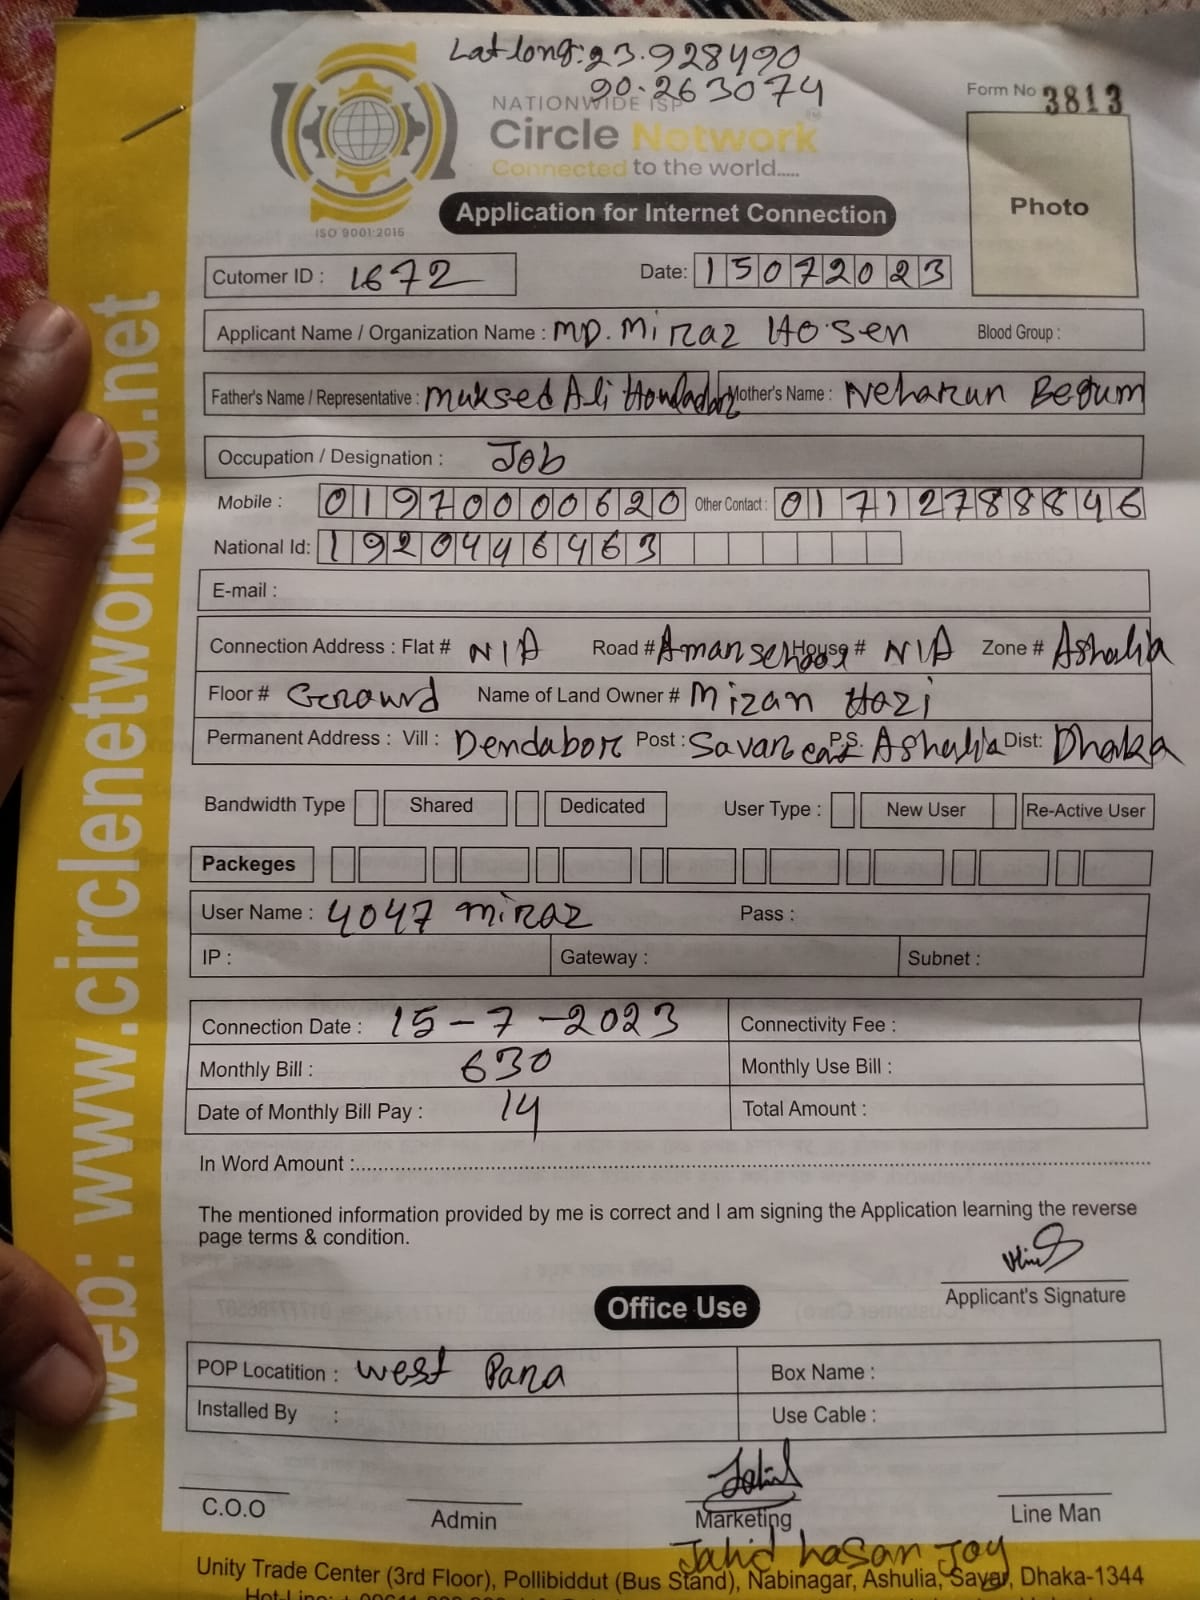 Lat long: 23.928490
90.263074
NATIONWIDE ISP
Circle Network
Connected to the world.....
ISO 9001:2015
Form No 3813
Photo
Application for Internet Connection
Cutomer ID : 1672 Date: 15072023
Applicant Name / Organization Name : MD. Miraz Hosen Blood Group :
Father's Name / Representative : Muksed Ali Howladar Mother's Name : Neharun Begum
Occupation / Designation : Job
Mobile : 01970000620 Other Contact : 01712788846
National Id: 1920446463
E-mail :
Connection Address : Flat # N/A Road # Aman School House # N/A Zone # Ashulia
Floor # Ground Name of Land Owner # Mizan Hazi
Permanent Address : Vill : Dendabor Post : Savar cant P.S. Ashulia Dist: Dhaka
Bandwidth Type Shared Dedicated User Type : New User Re-Active User
Packeges
User Name : 4047 miraz Pass :
IP : Gateway : Subnet :
Connection Date : 15-7-2023 Connectivity Fee :
Monthly Bill : 630 Monthly Use Bill :
Date of Monthly Bill Pay : 14 Total Amount :
In Word Amount :
The mentioned information provided by me is correct and I am signing the Application learning the reverse
page terms & condition.
Applicant's Signature
Office Use
POP Locatition : West Para Box Name :
Installed By : Use Cable :
C.O.O Admin Marketing Line Man
Jahid hasan Joy
Unity Trade Center (3rd Floor), Pollibiddut (Bus Stand), Nabinagar, Ashulia, Savar, Dhaka-1344
web: www.circlenetworkbd.net